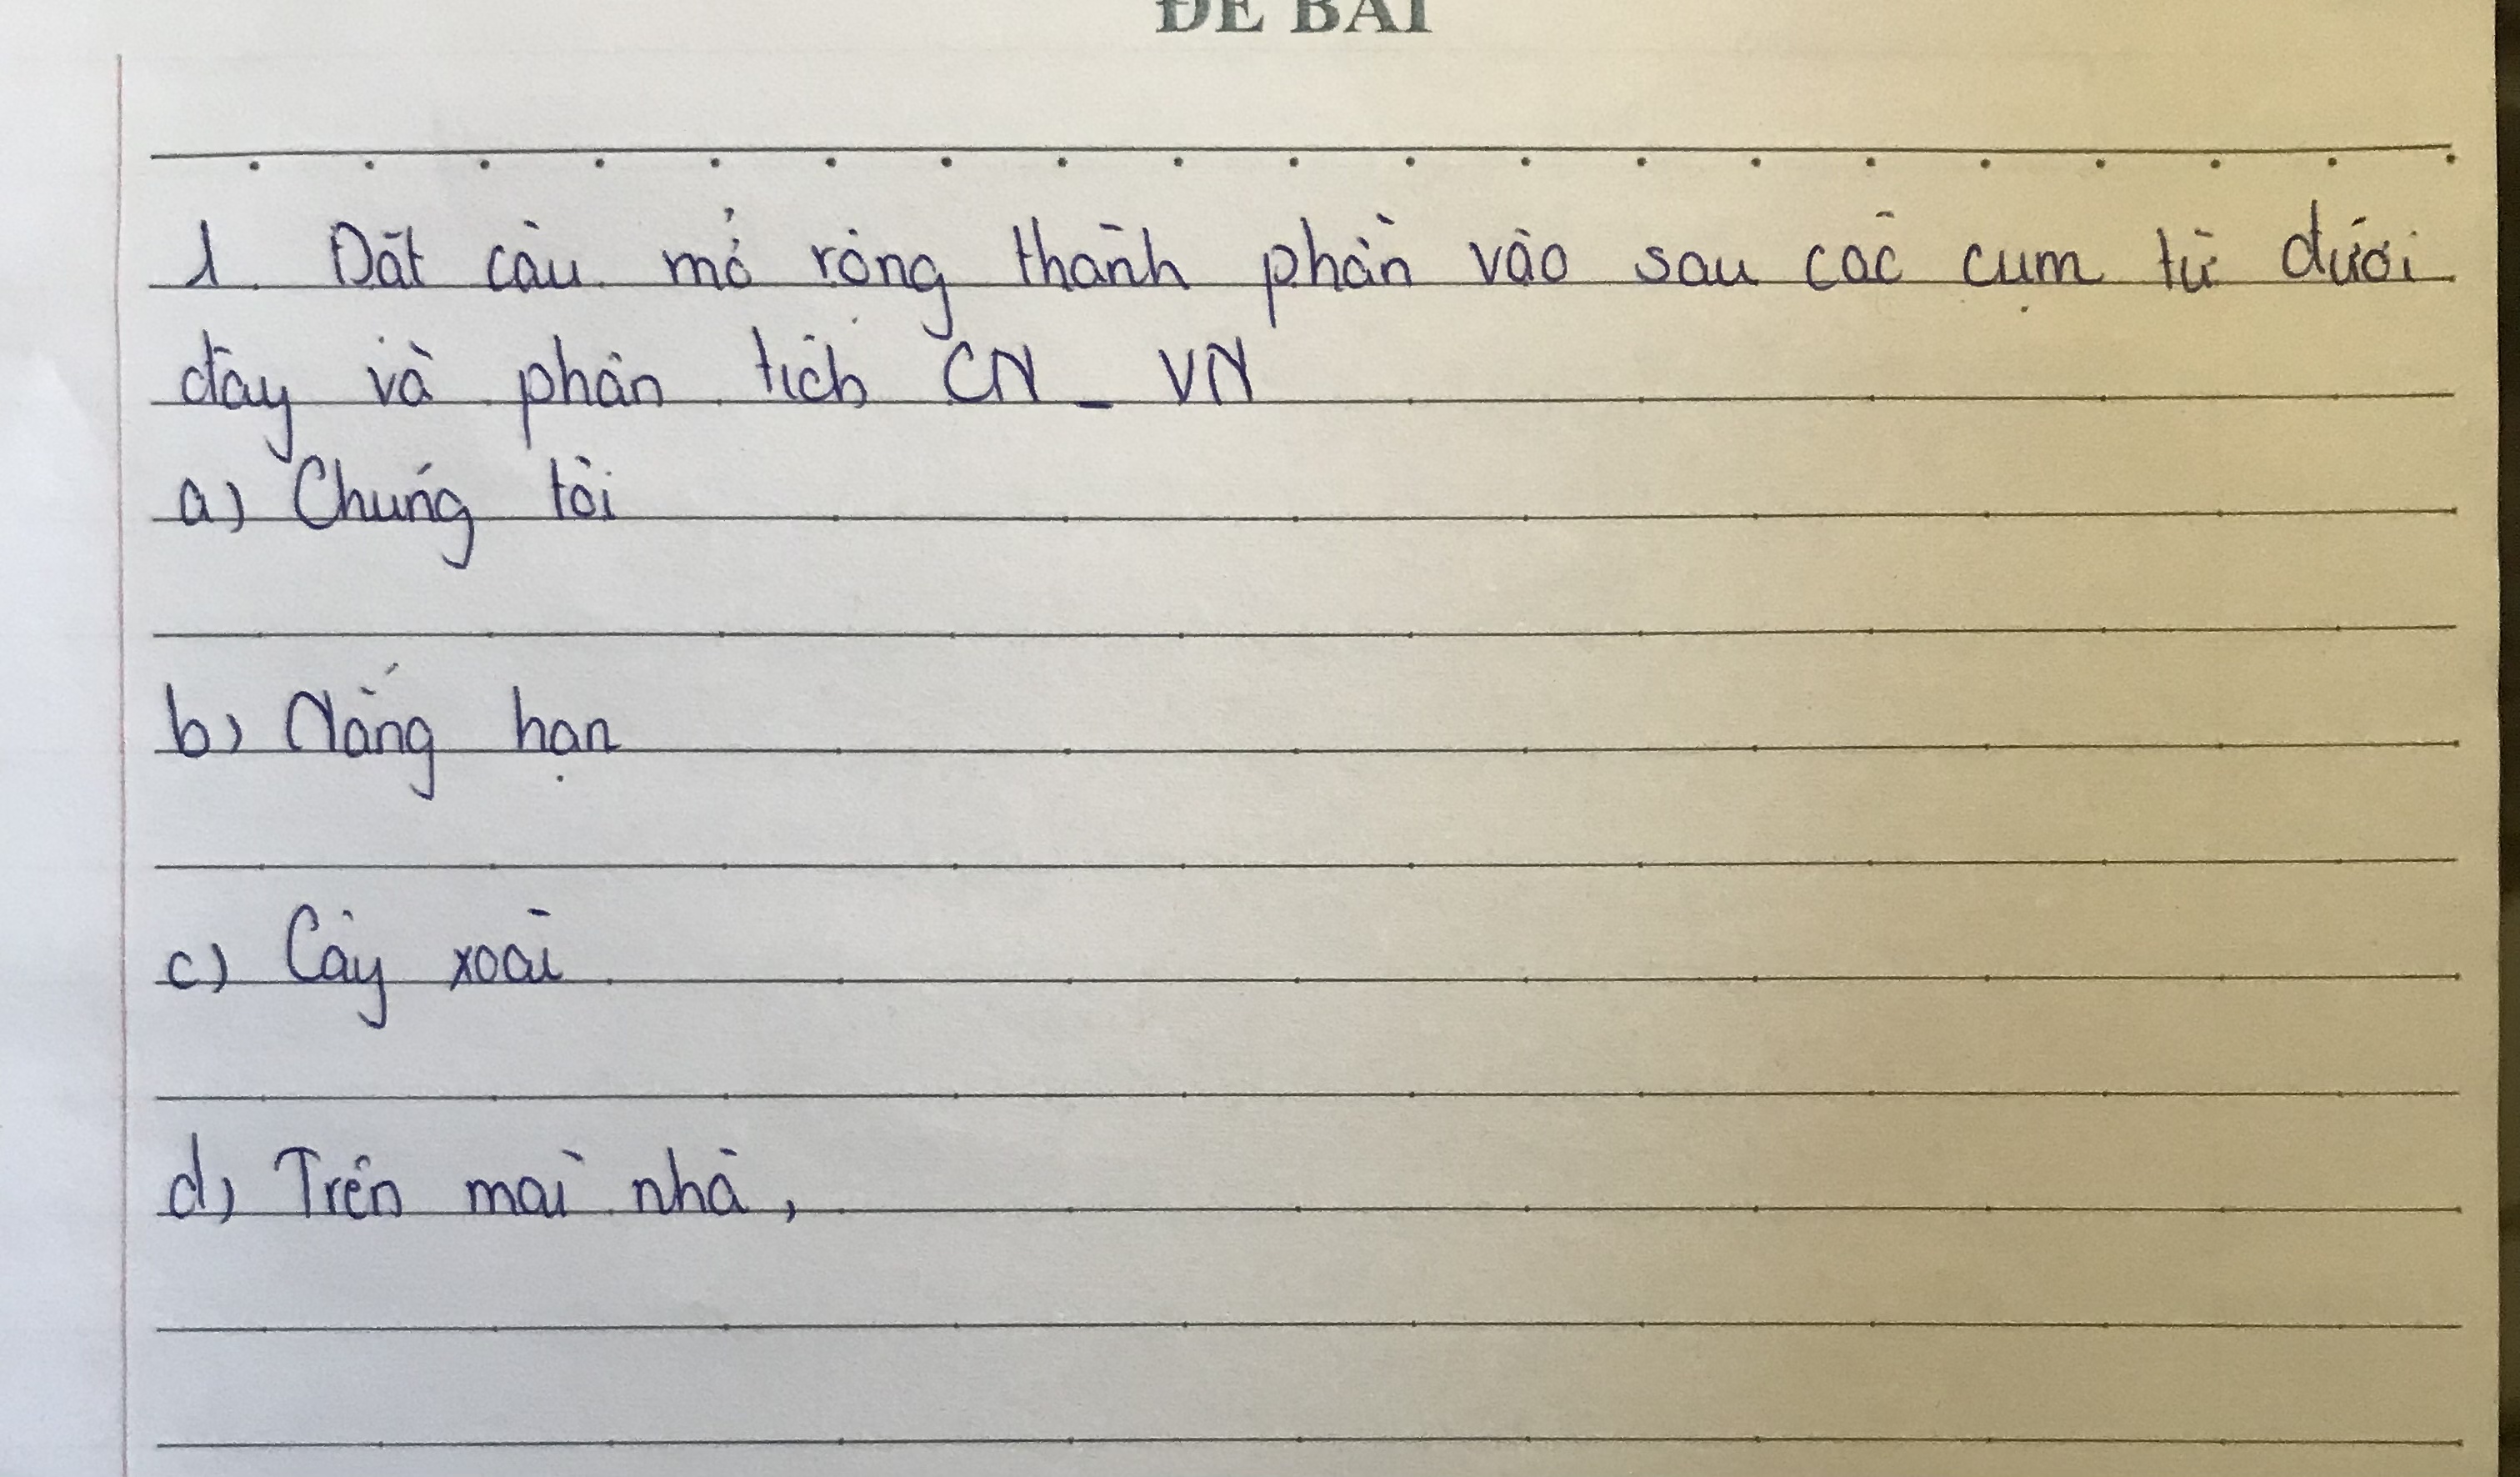 ĐỀ BÀI
1. Đặt câu mở rộng thành phần vào sau các cụm từ dưới
đây và phân tích CN _ VN
a) Chúng tôi
b) Nắng hạn
c) Cây xoài
d) Trên mái nhà,